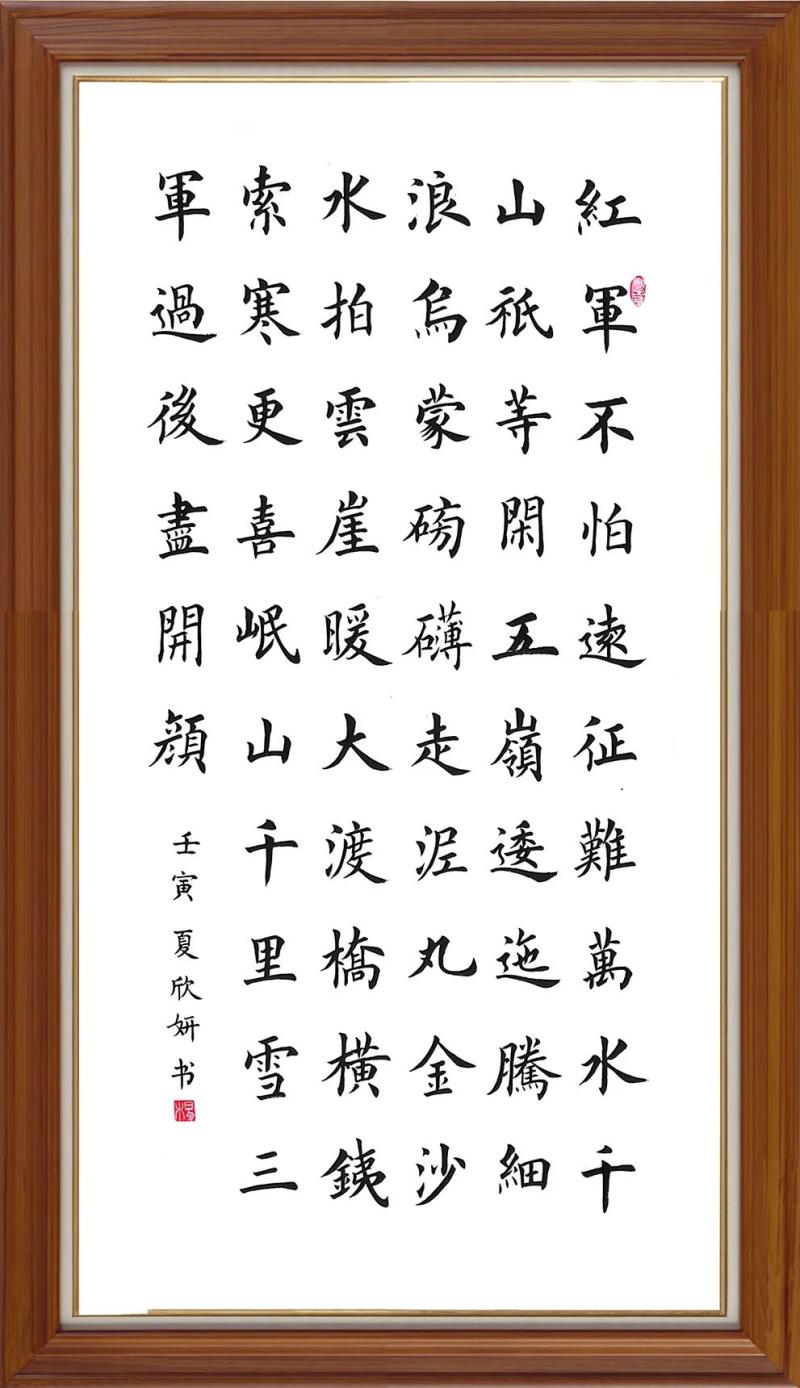 紅軍不怕遠征難萬水千
山祇等閑五嶺逶迤騰細
浪烏蒙磅礴走泥丸金沙
水拍雲崖暖大渡橋橫銕
索寒更喜岷山千里雪三
軍過後盡開顏
壬寅夏欣妍书
楊